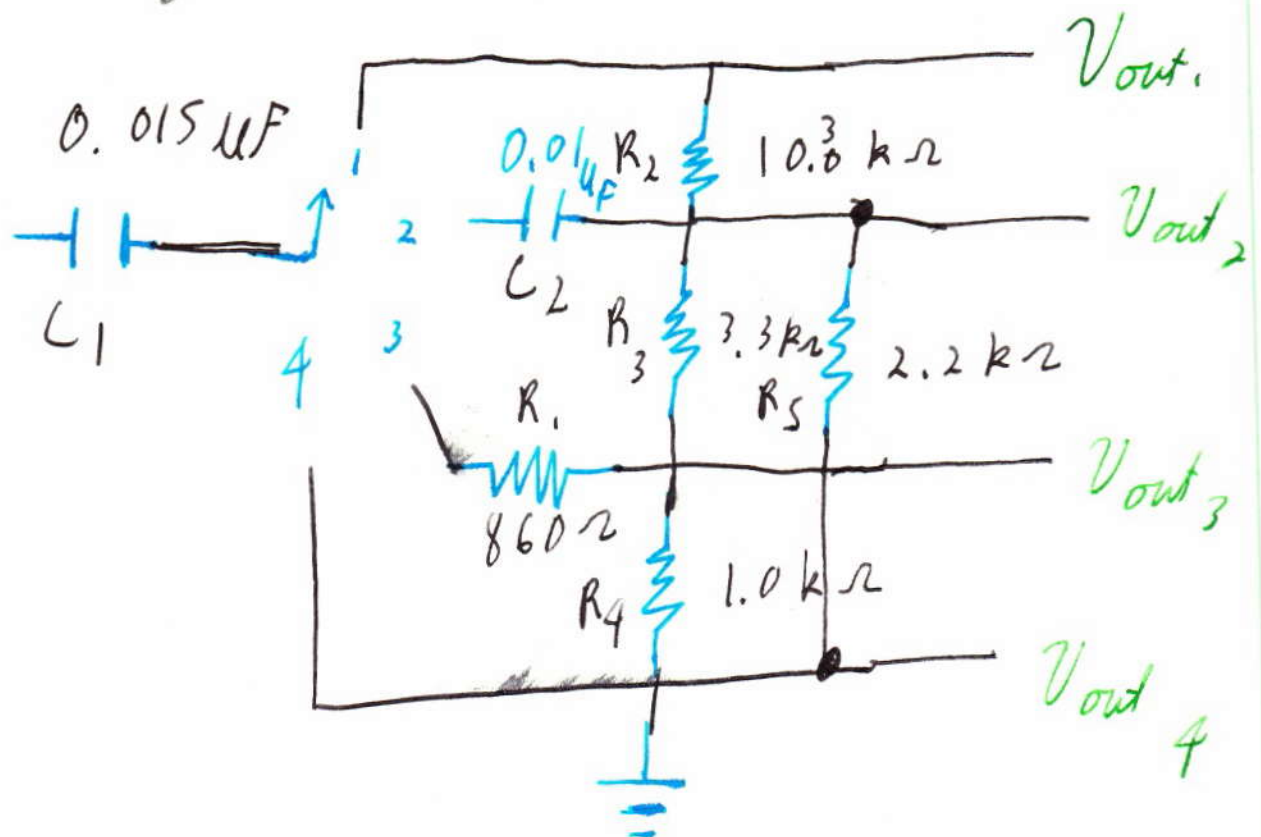 Vout1
0.015 μF
1
0.01 μF
R2
10.3 kΩ
2
Vout2
C1
C2
3
R3
3.3 kΩ
2.2 kΩ
4
R1
R5
Vout3
860 Ω
R4
1.0 kΩ
Vout4